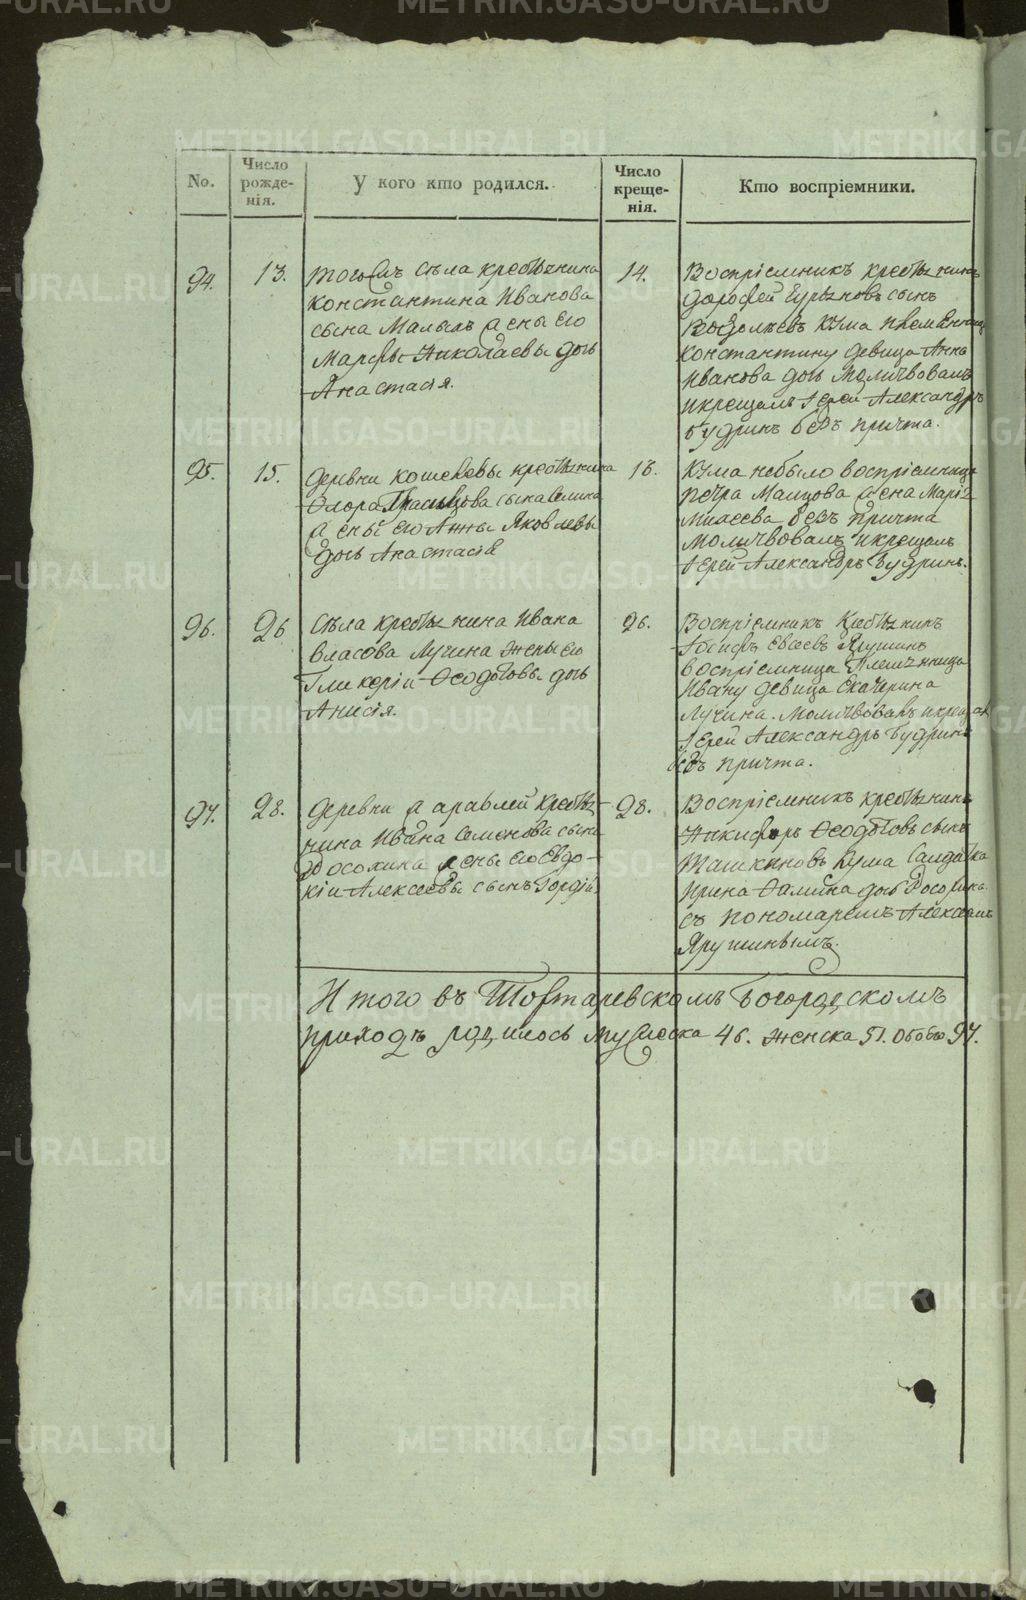 METRIKI.GASO-URAL.RU
No.
Число
рожде-
нія.
У кого кто родился.
Число
креще-
нія.
Кто воспріемники.
94.
13.
тогожъ сѣла крестьянина
Константина Иванова
сына Малыхъ жены его
Марфы Николаевы дочь
Анастасія.
14.
Воспріемникъ крестьянинъ
дорофей сынъ
кума
Константину девица Анна
Иванова дочь Молитвовалъ
икрещалъ Іерей Александръ
Будринъ безъ причта.
95.
15.
деревни крестьянина
Ѳлора сына
жены его Анны Яковлевы
дочь Анастасія
Кума небыло воспріемница
петра Малцова жена Марія
безъ причта
Молитвовалъ икрещалъ
Іерей Александръ Будринъ.
96.
26
Сѣла крестьянина Ивана
Власова Лучина жены его
Гликеріи Ѳеодотовы дочь
Анисія.
26.
Воспріемникъ
Іосифъ Евсеевъ Ярушинъ
воспріемница племянница
Ивану девица Екатерина
Лучина. Молитвовалъ икрещалъ
Іерей Александръ Будринъ
безъ причта.
97.
28.
деревни крестья-
нина Ивана Семенова сына
жены его Евдо-
кіи Алексеевы сынъ Гордій
28.
Воспріемникъ крестьянинъ
Никифоръ Ѳеодотовъ сынъ
Ташкиновъ Кума Салдатка
Ирина дочь
съ пономаремъ Алексеемъ
Ярушинымъ.
Итого въ Торгаревскомъ Богородскомъ
приходѣ родилось мужеска 46. женска 51. обоего 97.